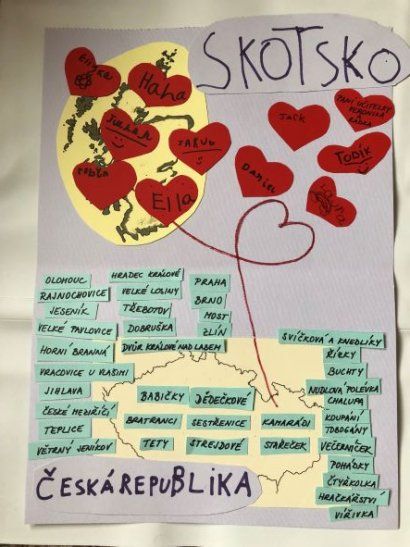 SKOTSKO
Eliška
Haha
JAKUB
Ella
JACK
PANÍ UČITELKY
VERONIKA
RADKA
TODÍK
Daniel
OLOMOUC
RAJNOCHOVICE
JESENÍK
VELKÉ PAVLOVICE
HORNÍ BRANNÁ
VRACOVICE U VLAŠIMI
JIHLAVA
ČESKÉ MEZIŘÍČÍ
TEPLICE
VĚTRNÝ JENÍKOV
HRADEC KRÁLOVÉ
VELKÉ LOSINY
TŘEBOTOV
DOBRUŠKA
DVŮR KRÁLOVÉ NAD LABEM
PRAHA
BRNO
MOST
ZLÍN
BABIČKY
DĚDEČKOVÉ
BRATRANCI
SESTŘENICE
KAMARÁDI
TETY
STREJDOVÉ
STAŘEČEK
SVÍČKOVÁ A KNEDLÍKY
ŘÍZKY
BUCHTY
NUDLOVÁ POLÉVKA
CHALUPA
KOUPÁNÍ
TOBOGÁNY
VEČERNÍČEK
POHÁDKY
ČTYŘKOLKA
HRAČKÁŘSTVÍ
VÍŘIVKA
ČESKÁ REPUBLIKA